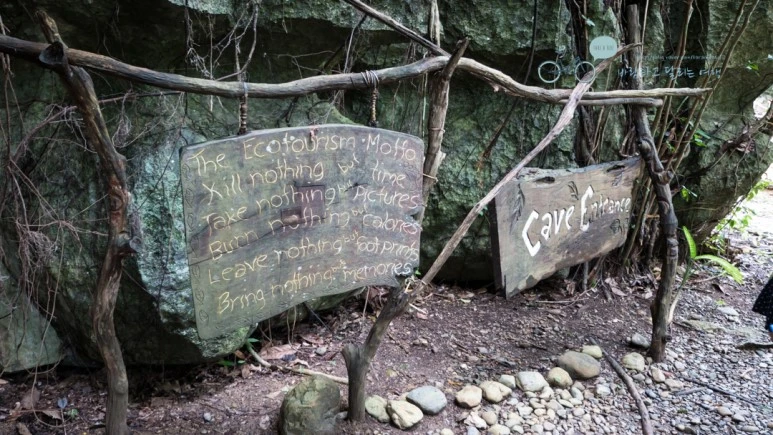 The Ecotourism Motto
Kill nothing but time
Take nothing but Pictures
Burn nothing but calories
Leave nothing but footprints
Bring nothing but memories
Cave Entrance